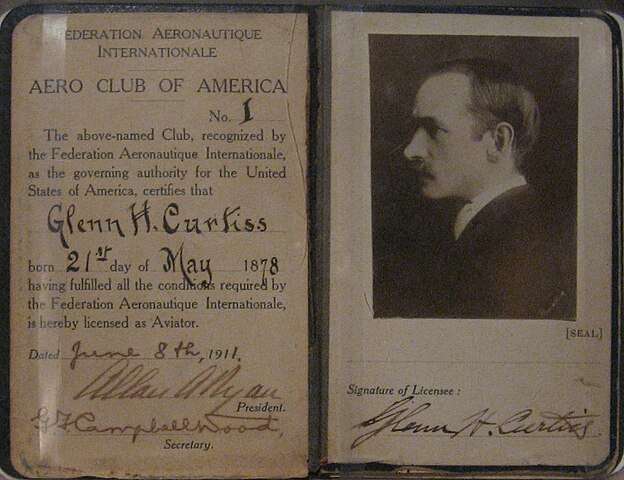 FEDERATION AERONAUTIQUE
INTERNATIONALE
AERO CLUB OF AMERICA
No. 1
The above-named Club, recognized by
the Federation Aeronautique Internationale,
as the governing authority for the United
States of America, certifies that
Glenn H. Curtiss
born 21st day of May 1878
having fulfilled all the conditions required by
the Federation Aeronautique Internationale,
is hereby licensed as Aviator.
Dated June 8th, 1911.
Allan A Ryan
President.
G F Campbell Wood,
Secretary.
[SEAL]
Signature of Licensee :
Glenn H. Curtiss.